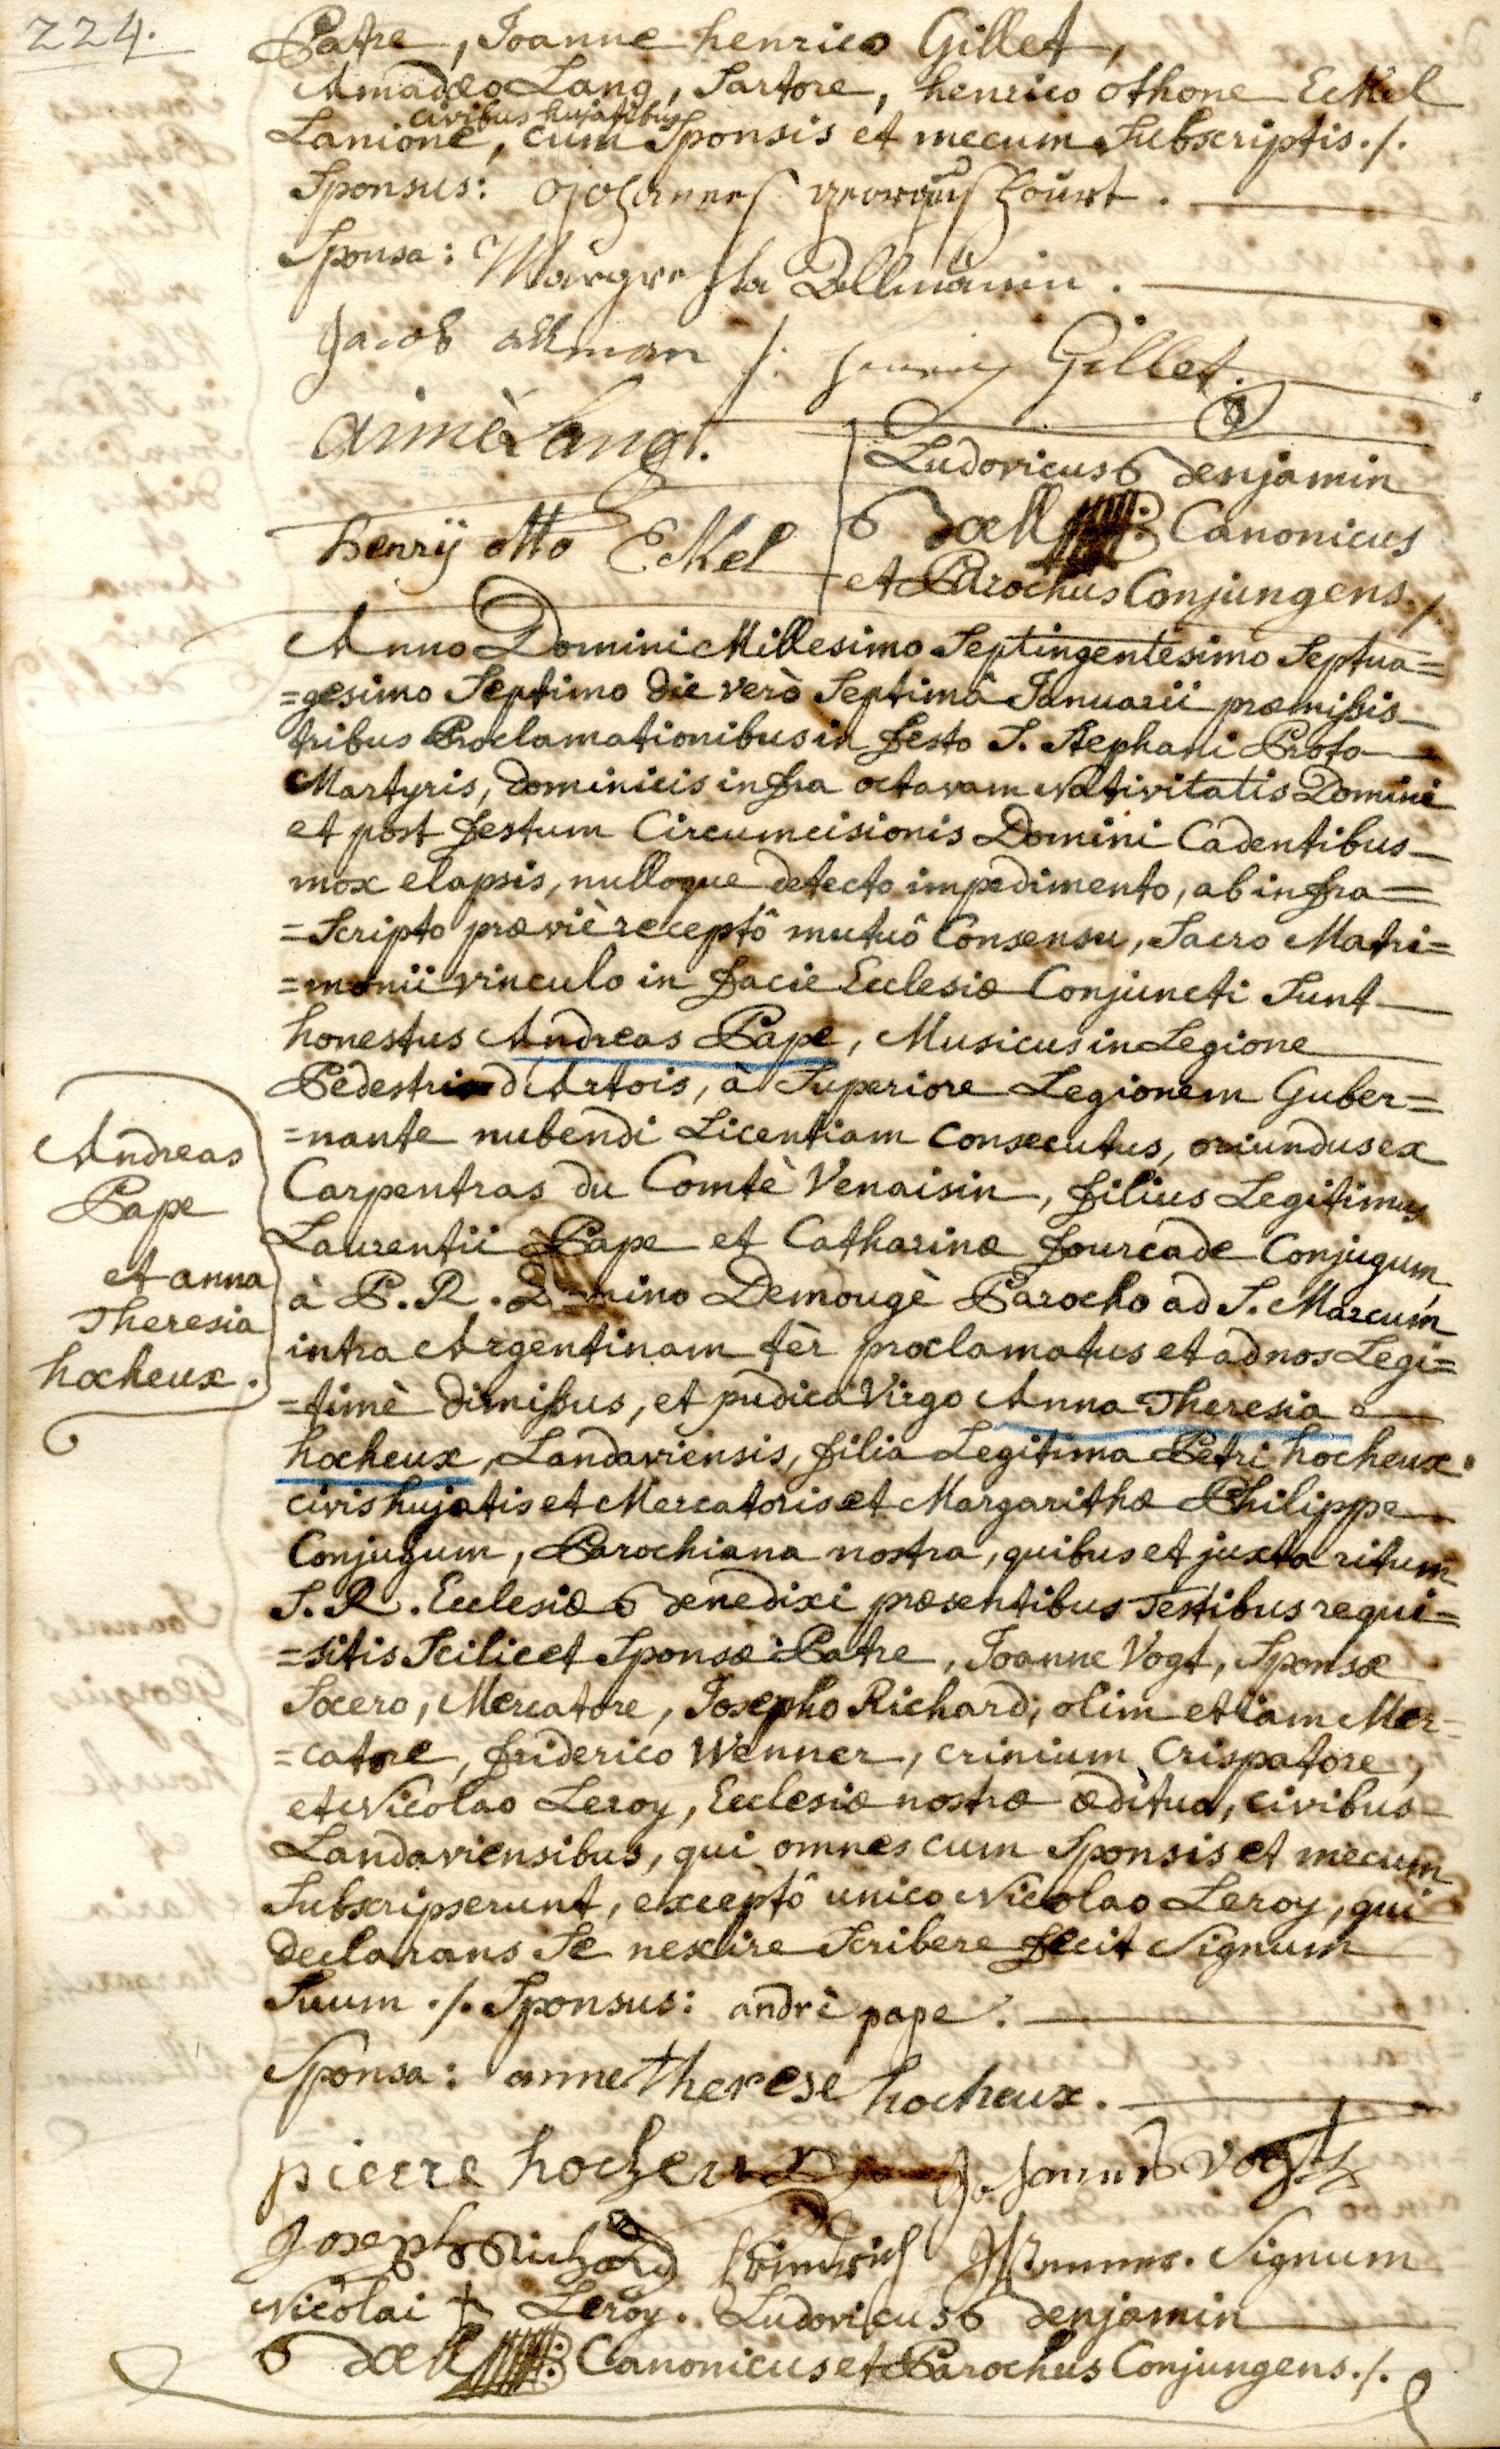 224.
Patre, Joanne henrico Gillet,
Amadæo Lang, Sartore, henrico othone Eckel
civibus hujatibus
Lanione, cum Sponsis et mecum Subscriptis ./.
Sponsus: Johannes georgius
Sponsa: Margretha
Jacob allman /: henrich Gillet.
aimè Lang.
henrÿ otto Eckel
Ludovicus Benjamin
Bœll Canonicus
et Parochus Conjungens ./.
Anno Domini Millesimo Septingentesimo Septua=
=gesimo Septimo die verò Septimâ Januarii præmissis
tribus Proclamationibus in festo S. Stephani Proto
Martyris, Dominicis infra octavam Nativitatis Domini
et post festum Circumcisionis Domini Cadentibus
mox elapsis, nulloque detecto impedimento, ab infra=
=Scripto præviè receptô mutuô Consensu, Sacro Matri=
=monii vinculo in facie Ecclesiæ Conjuncti Sunt
honestus Andreas Pape, Musicus in Legione
Pedestri d'Artois, à Superiore Legionem Guber=
=nante nubendi Licentiam consecutus, oriundus ex
Carpentras du Comtè Venaisin, filius Legitimus
Laurentii Pape et Catharinæ fourcade Conjugum,
à P. R. Domino Demougè Parocho ad S. Marcum
intra Argentinam tèr proclamatus et ad nos Legi=
=timè dimissus, et pudica Virgo Anna Theresia
hocheux, Landaviensis, filia Legitima Petri hocheux
civis hujatis et Mercatoris et Margarithæ Philippe
Conjugum, Parochiana nostra, quibus et juxta ritum
S. R. Ecclesiæ Benedixi præsentibus Testibus requi=
=sitis Scilicet Sponsæ Patre, Joanne Vogt, Sponsæ
Socero, Mercatore, Josepho Richard, olim etiam Mer=
=catore, friderico Wenner, crinium Crispatore,
et Nicolao Leroy, Ecclesiæ nostræ ædituo, civibus
Landaviensibus, qui omnes cum Sponsis et mecum
Subscripserunt, exceptô unico Nicolao Leroy, qui
declarans Se nescire Scribere fecit Signum
Suum ./. Sponsus: andrè pape.
Sponsa: anne therese hocheux.
pierre hocheux Johannes Vogt
Joseph Richard fridrich Wenner. Signum
Nicolai + Leroy. Ludovicus Benjamin
Bœll Canonicus et Parochus Conjungens ./.
Andreas
Pape
et anna
Theresia
hocheux.